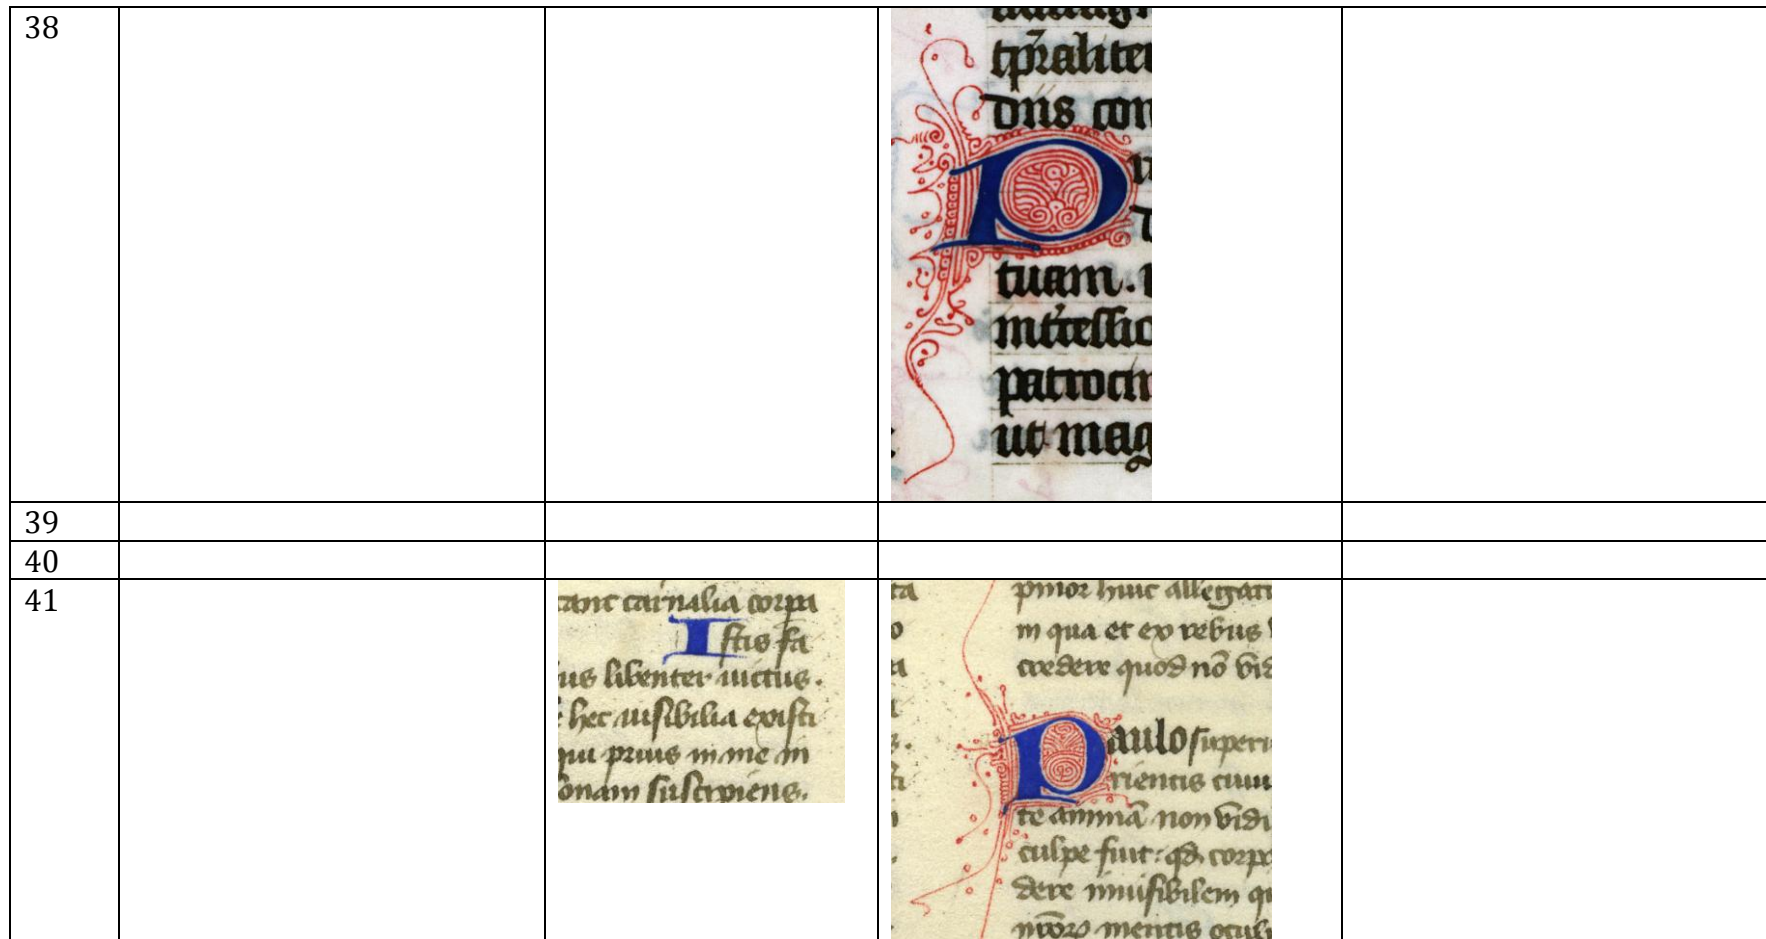 38
tp̄raliter
dn̄s con
P
tuam.
patrocin
ut mag
39
40
41
tant carnalia corpa
Istis fa
us libenter uictus.
hec uisibilia existi
qui prius in me in
onam suscipiens.
in qua et ex rebus
credere quod nō vid
Paulo superi
rientis cuiu
te animā non vidi
culpe fuit: qd corpo
dere inuisibilem qu
mentis oculi